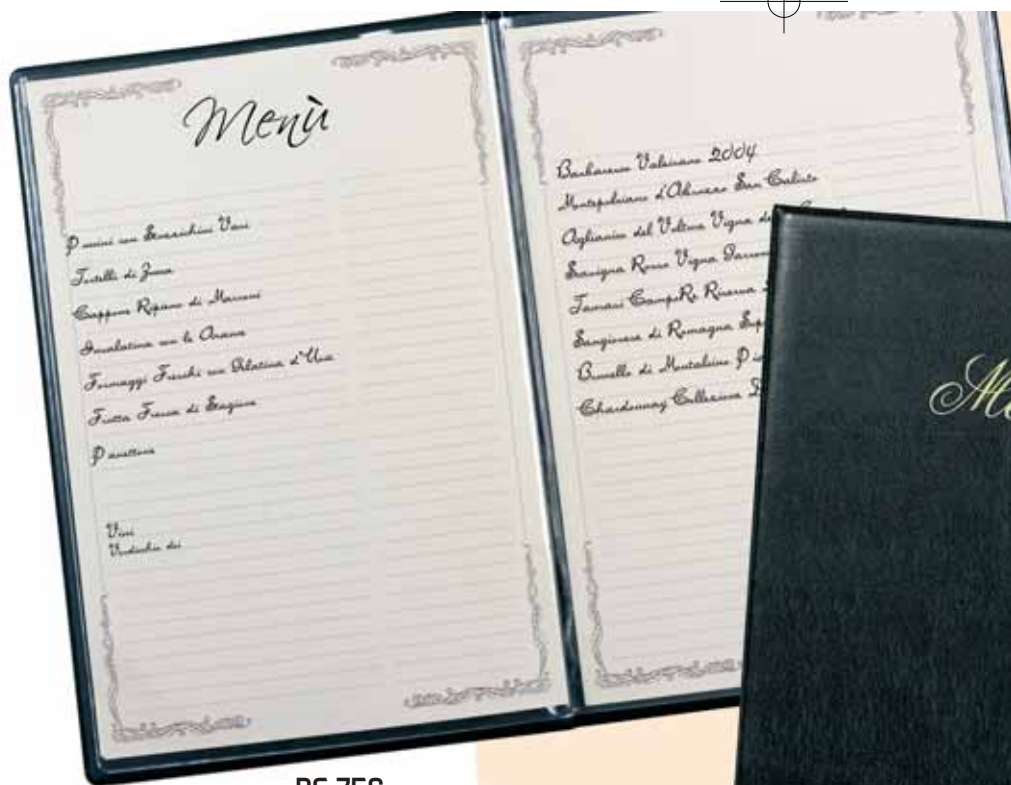 Menù
Panini con Stracchini Vari
Tortelli di Zucca
Cappone Ripieno di Marroni
Insalatina con le Arance
Formaggi Freschi con Gelatina d'Uva
Frutta Fresca di Stagione
Panettone
Vini
Verdicchio dei
Barbaresco Valeirano 2004
Montepulciano d'Abruzzo San Calisto
Aglianico del Vulture Vigna
Sravigna Rosso Vigna
Taurasi CampoRe Riserva
Sangiovese di Romagna Sup
Brunello di Montalcino
Chardonnay Collezione
Me